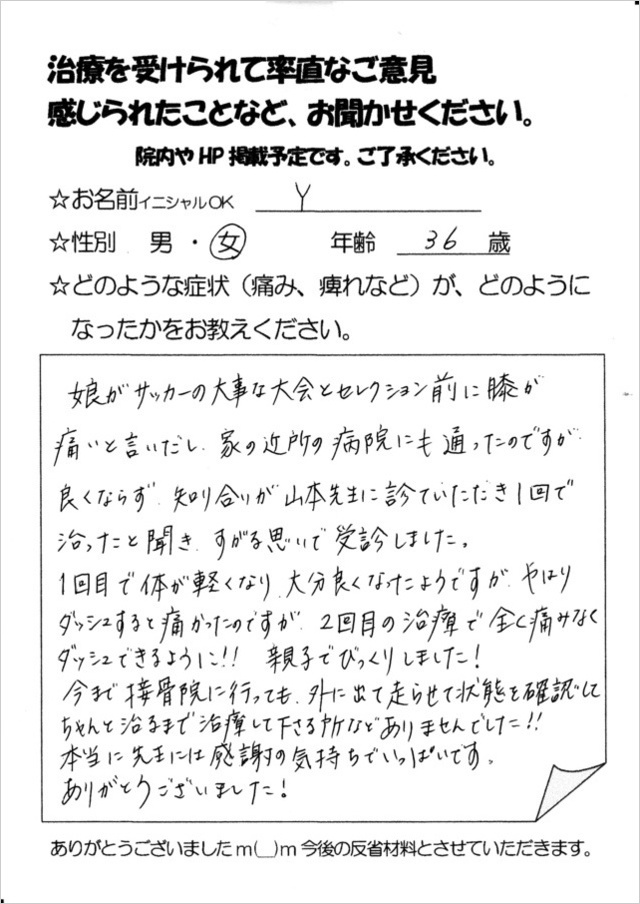 治療を受けられて率直なご意見
感じられたことなど、お聞かせください。
院内やHP掲載予定です。ご了承ください。
☆お名前イニシャルOK Y
☆性別 男・女 年齢 36 歳
☆どのような症状（痛み、痺れなど）が、どのように
なったかをお教えください。
娘がサッカーの大事な大会とセレクション前に膝が
痛いと言いだし、家の近所の病院にも通ったのですが、
良くならず、知り合いが山本先生に診ていただき1回で
治ったと聞き、すがる思いで受診しました。
1回目で体が軽くなり、大分良くなったようですが、やはり
ダッシュすると痛かったのですが、2回目の治療で全く痛みなく
ダッシュできるように!! 親子でびっくりしました!
今まで接骨院に行っても、外に出て走らせて状態を確認して
ちゃんと治るまで治療して下さる所などありませんでした!!
本当に先生には感謝の気持ちでいっぱいです。
ありがとうございました!
ありがとうございましたm(__)m今後の反省材料とさせていただきます。